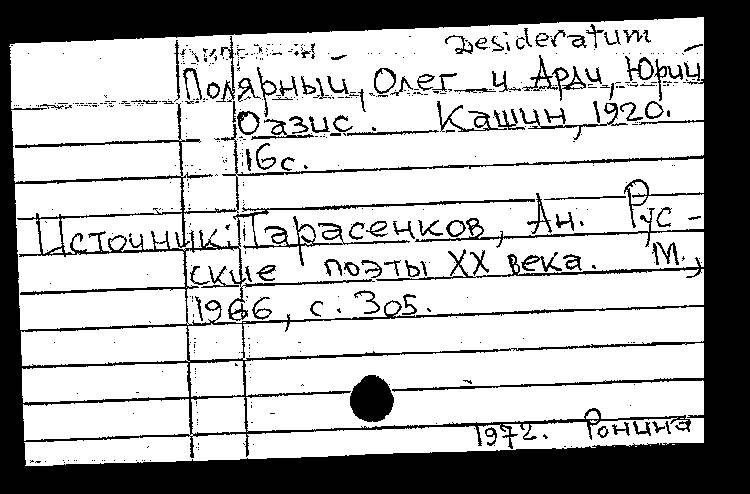 Desideratum
Полярный, Олег и Арди, Юрий
Оазис. Кашин, 1920.
16с.
Источник: Тарасенков, Ан. Рус-
ские поэты XX века. М.,
1966, с. 305.
1972. Ронина